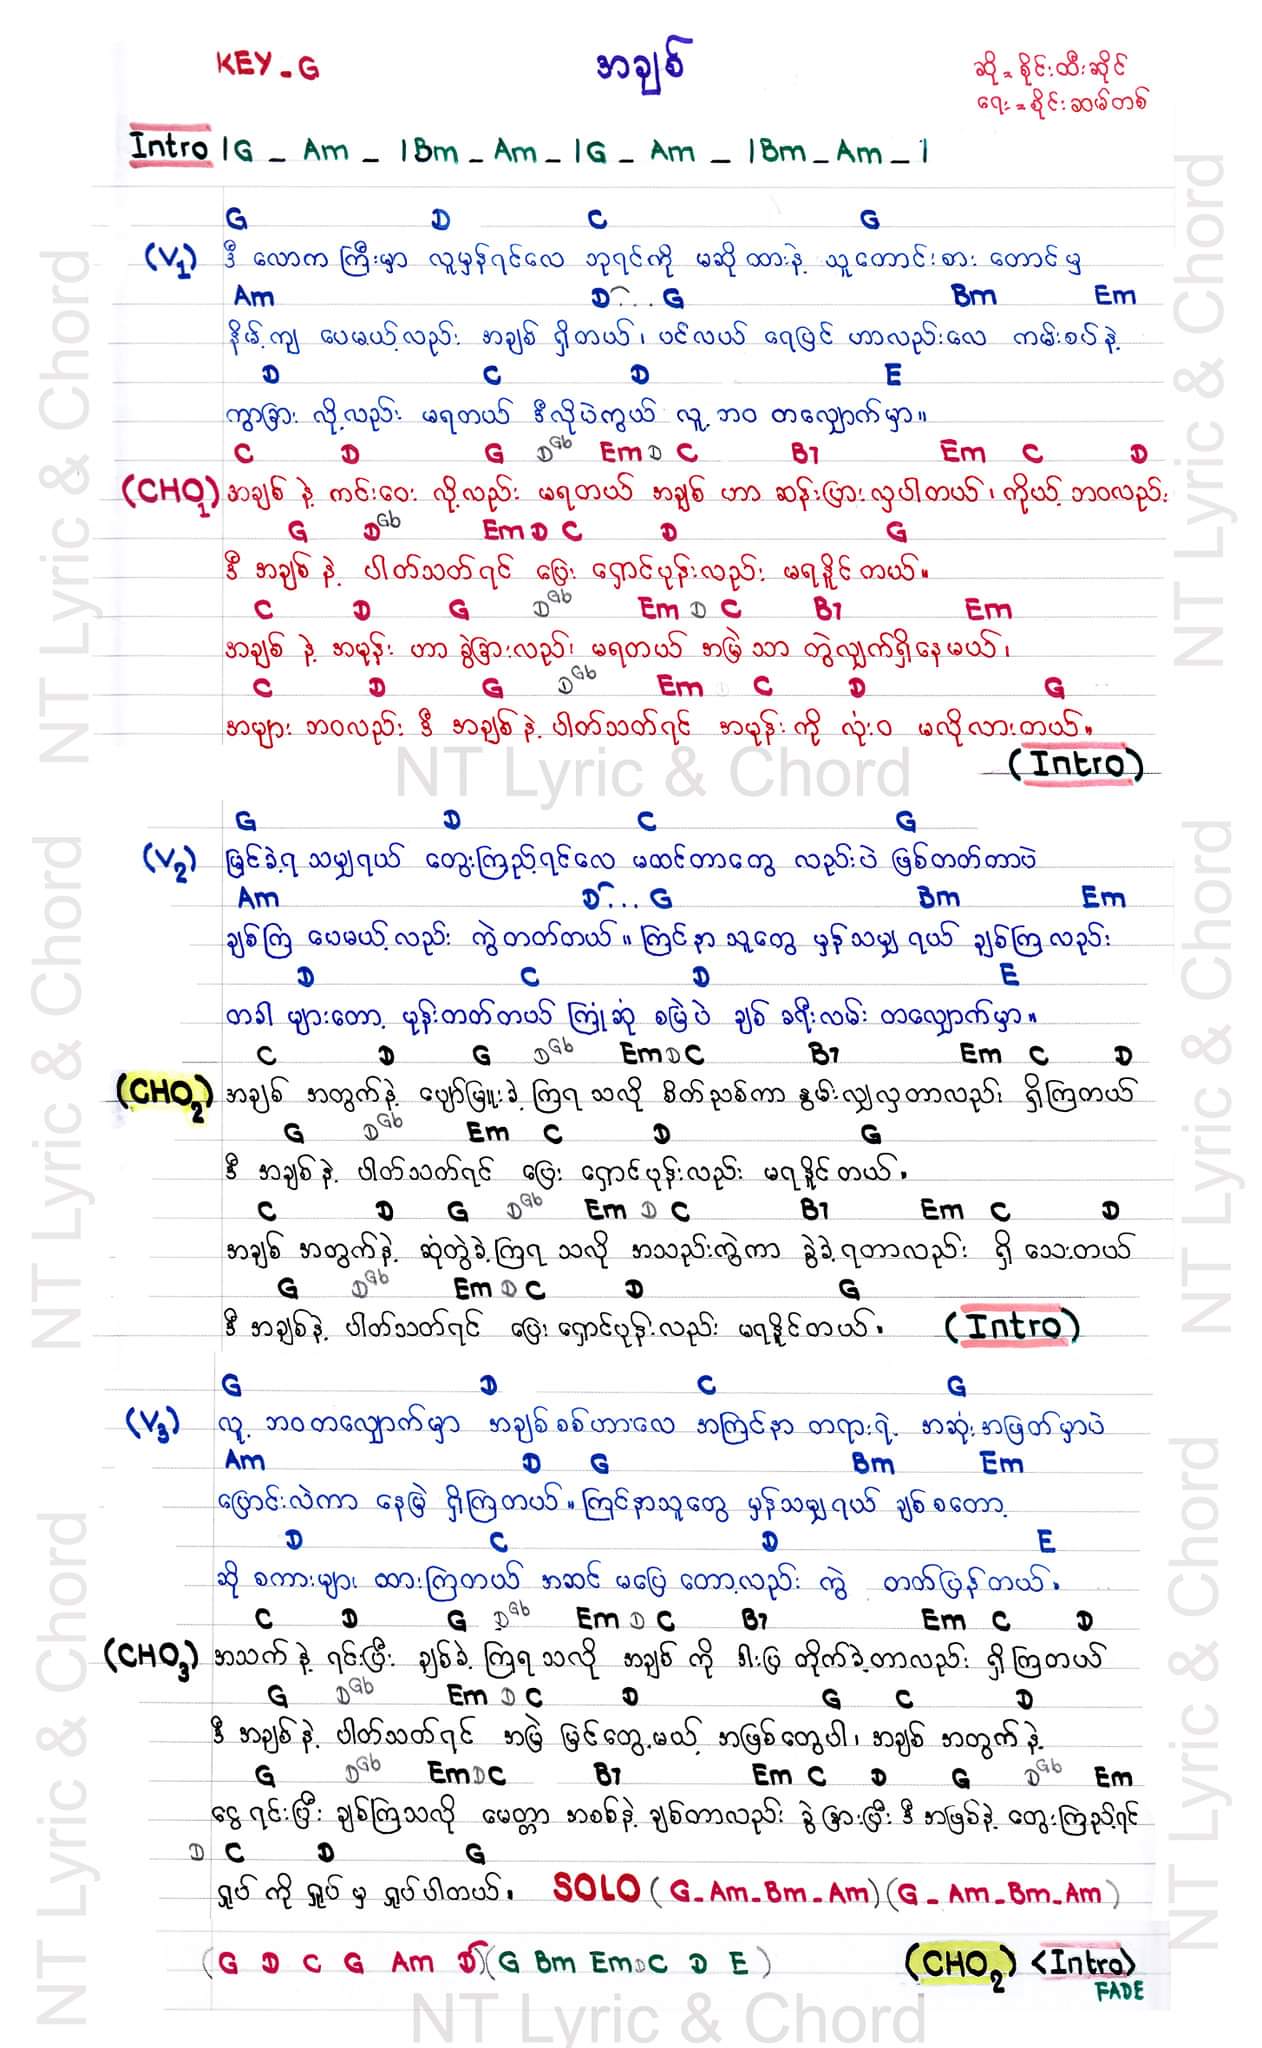 KEY - G
အချစ်
ဆို = စိုင်းထီးဆိုင်
ရေး = စိုင်းဆမ်တစ်
Intro | G _ Am _ | Bm _ Am _ | G _ Am _ | Bm _ Am _ |
G D C G
(V1) ဒီ လောက ကြီးမှာ လူမှန်ရင်လေ ဘုရင်ကို မဆို ထားနဲ့ သူတောင်းစား တောင်မှ
Am D... G Bm Em
နိမ့်ကျ ပေမယ့်လည်း အချစ် ရှိတယ်၊ ပင်လယ် ရေပြင် ဟာလည်းလေ ကမ်းစပ်နဲ့
D C D E
ကွာခြား လို့လည်း မရတယ် ဒီလိုပဲကွယ် လူ့ ဘဝ တလျှောက်မှာ။
C D G DGb Em D C B7 Em C D
(CHO1) အချစ် နဲ့ ကင်းဝေး လို့လည်း မရတယ် အချစ် ဟာ ဆန်းပြားလှပါတယ်၊ ကိုယ့် ဘဝလည်း
G DGb Em D C D G
ဒီ အချစ် နဲ့ ပါတ်သတ်ရင် ပြေး ရှောင်ပုန်းလည်း မရနိုင်တယ်။
C D G DGb Em D C B7 Em
အချစ် နဲ့ အမုန်း ဟာ ခွဲခြားလည်း မရတယ် အမြဲ သာ တွဲလျှက်ရှိနေမယ်၊
C D G DGb Em C D G
အများ ဘဝလည်း ဒီ အချစ်နဲ့ ပါတ်သတ်ရင် အမုန်း ကို လုံးဝ မလိုလားတယ်။
(Intro)
G D C G
(V2) မြင်ခဲ့ရ သမျှရယ် တွေးကြည့်ရင်လေ မထင်တာတွေ လည်းပဲ ဖြစ်တတ်တာပဲ
Am D... G Bm Em
ချစ်ကြ ပေမယ့်လည်း ကွဲတတ်တယ်။ ကြင်နာ သူတွေ မှန်သမျှ ရယ် ချစ်ကြ လည်း
D C D E
တခါ များတော့ မုန်းတတ်တယ် ကြုံဆုံ စမြဲပဲ ချစ် ခရီးလမ်း တလျှောက်မှာ။
C D G DGb Em D C B7 Em C D
(CHO2) အချစ် အတွက်နဲ့ ပျော်မြူးခဲ့ ကြရ သလို စိတ်ညစ်ကာ နွမ်းလျှလှတာလည်း ရှိကြတယ်
G DGb Em C D G
ဒီ အချစ်နဲ့ ပါတ်သက်ရင် ပြေး ရှောင်ပုန်းလည်း မရနိုင်တယ်။
C D G DGb Em D C B7 Em C D
အချစ် အတွက်နဲ့ ဆုံတွဲခဲ့ကြရ သလို အသည်းကွဲကာ ခွဲခဲ့ရတာလည်း ရှိ သေးတယ်
G DGb Em D C D G
ဒီ အချစ်နဲ့ ပါတ်သတ်ရင် ပြေး ရှောင်ပုန်းလည်း မရနိုင်တယ်။ (Intro)
G D C G
(V3) လူ့ ဘဝတလျှောက်မှာ အချစ်စစ်ဟာလေ အကြင်နာ တရားရဲ့ အဆုံးအဖြတ်မှာပဲ
Am D G Bm Em
ပြောင်းလဲကာ နေမြဲ ရှိကြတယ်။ ကြင်နာသူတွေ မှန်သမျှရယ် ချစ်စတော့
D C D E
ဆို စကားများ ထားကြတယ် အဆင် မပြေ တော့လည်း ကွဲ တတ်ပြန်တယ်။
C D G DGb Em D C B7 Em C D
(CHO3) အသက် နဲ့ ရင်းပြီး ချစ်ခဲ့ ကြရ သလို အချစ် ကို ဓါးပြ တိုက်ခဲ့တာလည်း ရှိကြတယ်
G DGb Em D C D G C D
ဒီ အချစ်နဲ့ ပါတ်သတ်ရင် အမြဲ မြင်တွေ့မယ့် အဖြစ်တွေပါ၊ အချစ် အတွက်နဲ့
G DGb Em D C B7 Em C D G DGb Em
ငွေရင်းပြီး ချစ်ကြသလို မေတ္တာ အစစ်နဲ့ ချစ်တာလည်း ခွဲခြားပြီး ဒီအဖြစ်နဲ့ တွေးကြည့်ရင်
D C D G
ရှုပ် ကို ရှုပ် မှ ရှုပ်ပါတယ်။ SOLO (G_Am_Bm_Am) (G_Am_Bm_Am)
(G D C G Am D) (G Bm Em D C D E) (CHO2) <Intro>
FADE
NT Lyric & Chord
NT Lyric & Chord
NT Lyric & Chord
NT Lyric & Chord
NT Lyric & Chord
NT Lyric & Chord
NT Lyric & Chord
NT Lyric & Chord